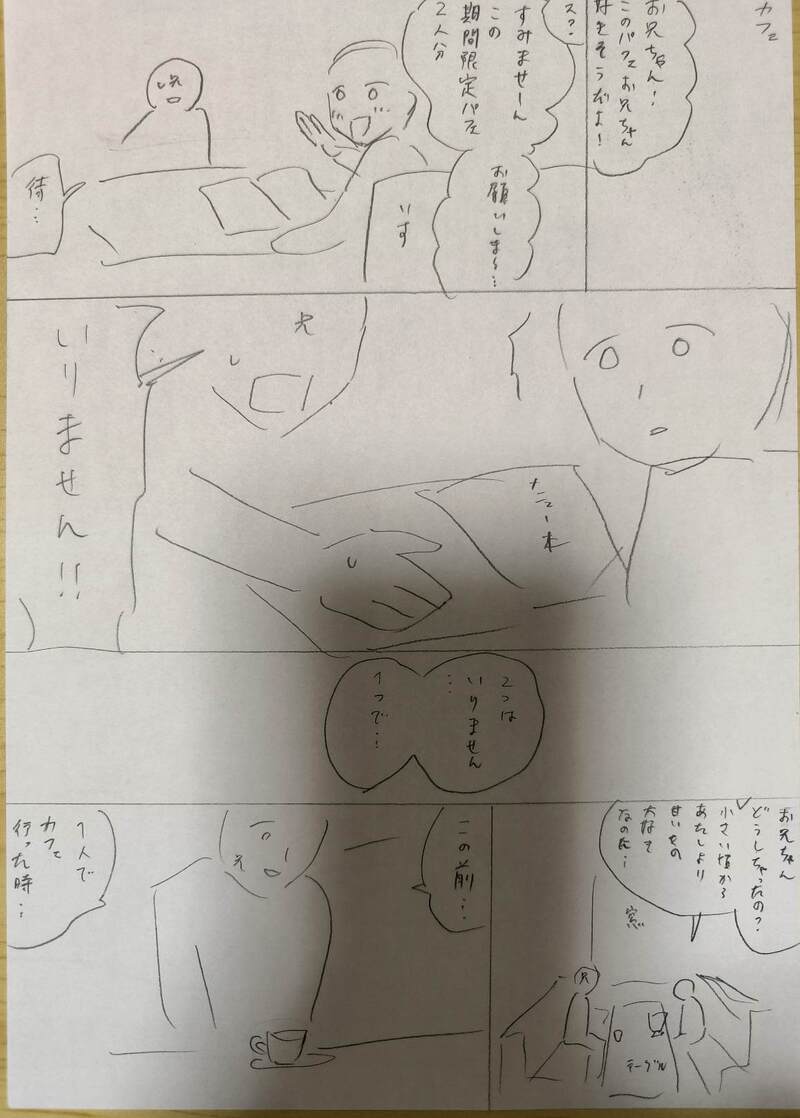 カフェ
お兄ちゃん!
このパフェお兄ちゃん
好きそうだよ!
スッ
すみませーん
この
期間限定パフェ
2人分
お願いしま〜…
いす
兄
待…
メニュー本
兄
いりません!!
2つは
いりません
…
1つで…
お兄ちゃん
どうしちゃったの?
小さい頃から
あたしより
甘いもの
大好き
なのに…
窓
兄
テーブル
この前…
兄
1人で
カフェ
行った時…